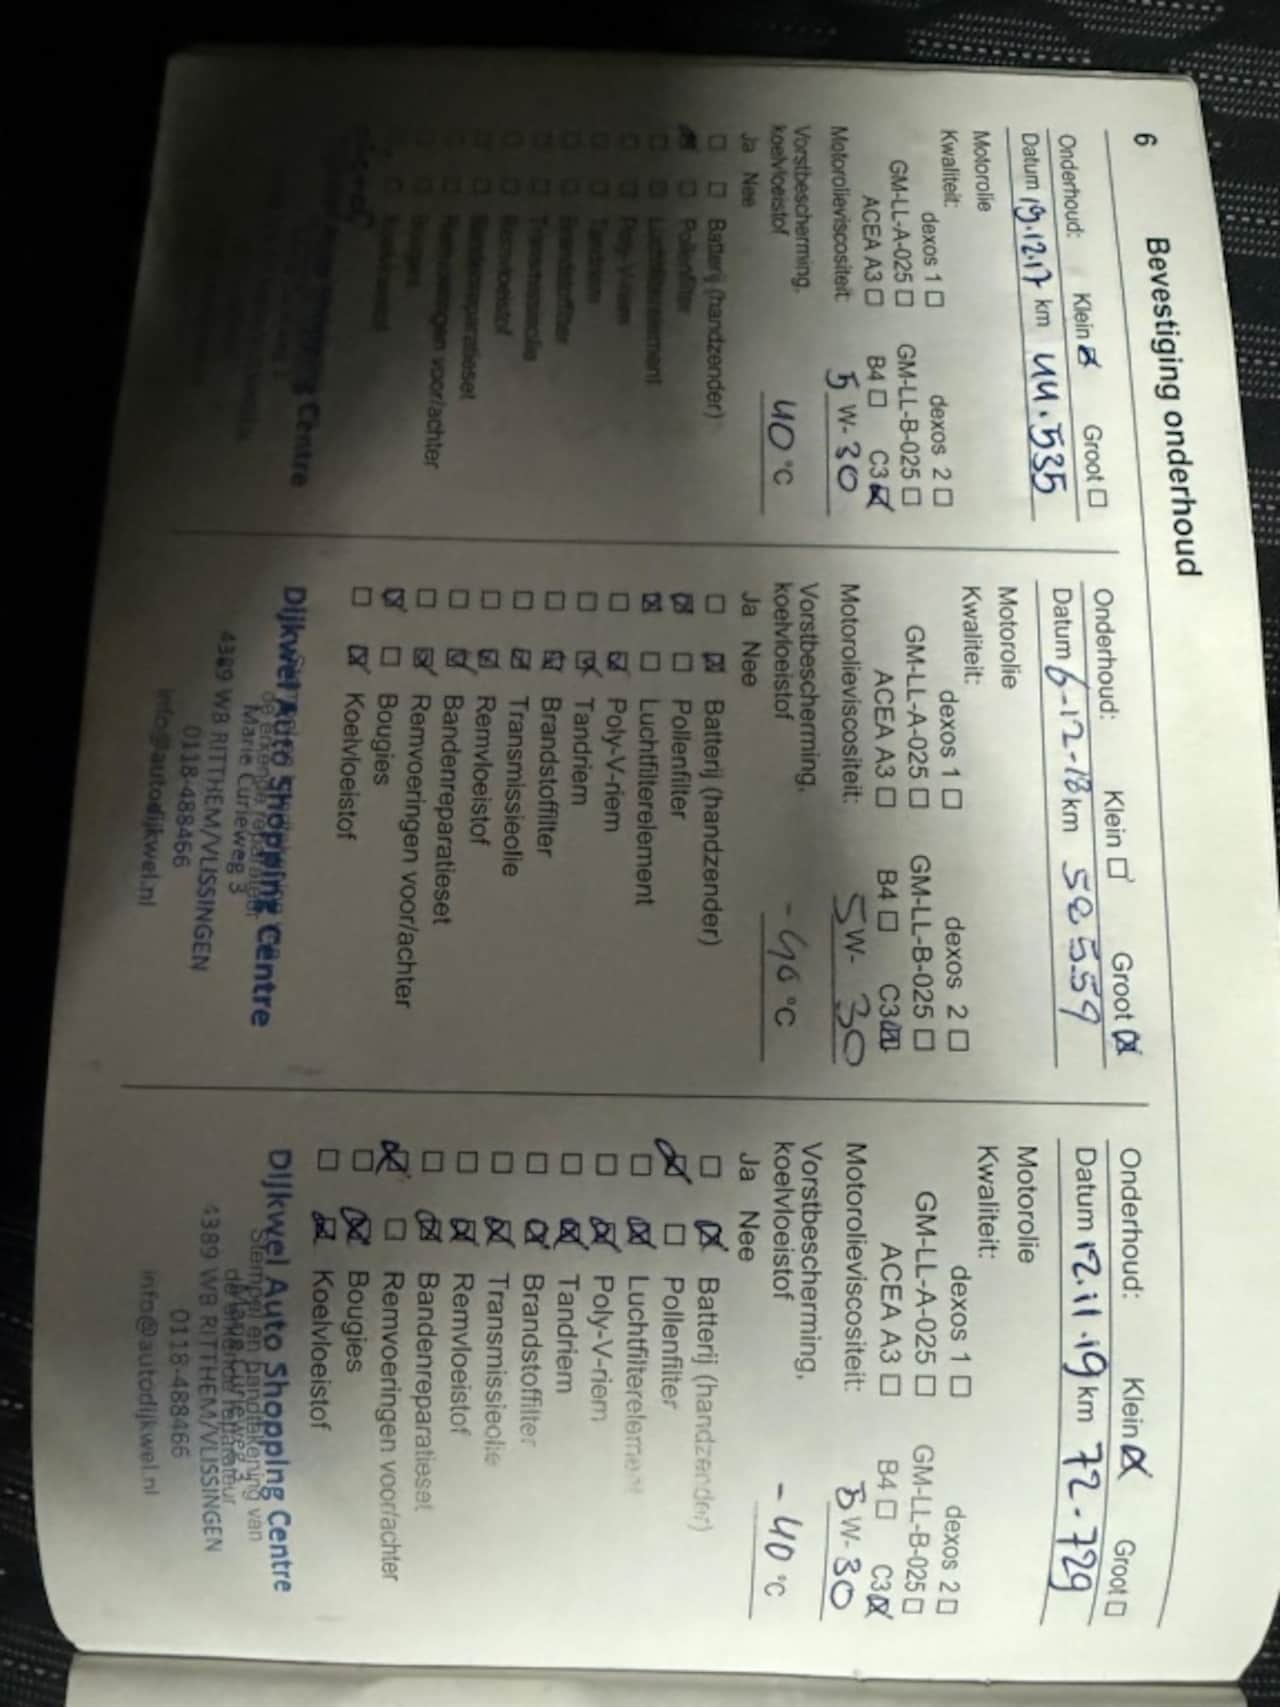 6
Bevestiging onderhoud
Onderhoud: Klein ☒ Groot ☐
Datum 19.12.17 km 44.535
Motorolie
Kwaliteit: dexos 1 ☐ dexos 2 ☐
GM-LL-A-025 ☐ GM-LL-B-025 ☐
ACEA A3 ☐ B4 ☐ C3 ☒
Motorolieviscositeit: 5 W- 30
Vorstbescherming,
koelvloeistof 40 °C
Ja Nee
☐ ☐ Batterij (handzender)
☒ ☐ Pollenfilter
☐ ☐ Luchtfilterelement
☐ ☐ Poly-V-riem
☐ ☐ Tandriem
☐ ☐ Brandstoffilter
☐ ☐ Transmissieolie
☐ ☐ Remvloeistof
☐ ☐ Bandenreparatieset
☐ ☐ Remvoeringen voor/achter
Centre
Onderhoud: Klein ☐ Groot ☒
Datum 6-12-18 km 58559
Motorolie
Kwaliteit: dexos 1 ☐ dexos 2 ☐
GM-LL-A-025 ☐ GM-LL-B-025 ☐
ACEA A3 ☐ B4 ☐ C3 ☒
Motorolieviscositeit: 5W- 30
Vorstbescherming,
koelvloeistof -40 °C
Ja Nee
☐ ☒ Batterij (handzender)
☒ ☐ Pollenfilter
☒ ☐ Luchtfilterelement
☐ ☒ Poly-V-riem
☐ ☒ Tandriem
☐ ☒ Brandstoffilter
☐ ☒ Transmissieolie
☐ ☒ Remvloeistof
☐ ☒ Bandenreparatieset
☐ ☒ Remvoeringen voor/achter
☒ ☐ Bougies
☐ ☒ Koelvloeistof
Dijkwel Auto Shopping Centre
Marie Curieweg 3
4389 WB RITTHEM/VLISSINGEN
0118-488466
info@autodijkwel.nl
Onderhoud: Klein ☒ Groot ☐
Datum 12.11.19 km 72.729
Motorolie
Kwaliteit: dexos 1 ☐ dexos 2 ☐
GM-LL-A-025 ☐ GM-LL-B-025 ☐
ACEA A3 ☐ B4 ☐ C3 ☒
Motorolieviscositeit: 5 W- 30
Vorstbescherming,
koelvloeistof -40 °C
Ja Nee
☐ ☒ Batterij (handzender)
☒ ☐ Pollenfilter
☐ ☒ Luchtfilterelement
☐ ☒ Poly-V-riem
☐ ☒ Tandriem
☐ ☒ Brandstoffilter
☐ ☒ Transmissieolie
☐ ☒ Remvloeistof
☐ ☒ Bandenreparatieset
☒ ☐ Remvoeringen voor/achter
☐ ☒ Bougies
☐ ☒ Koelvloeistof
Dijkwel Auto Shopping Centre
Stempel en handtekening van
4389 WB RITTHEM/VLISSINGEN
0118-488466
info@autodijkwel.nl